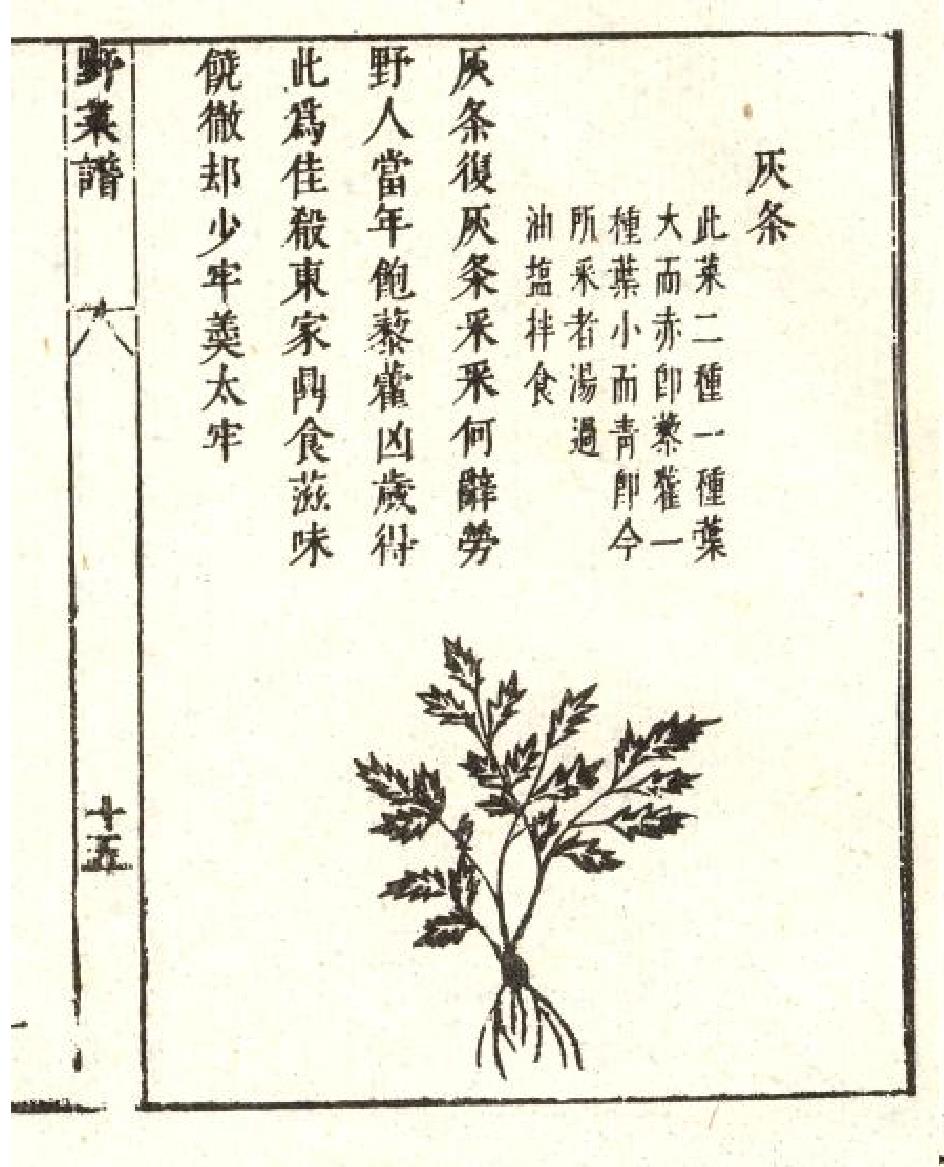 灰条
此菜二種一種葉
大而赤即藜藿一
種葉小而青即今
所采者湯過
油塩拌食
灰条復灰条采采何辭勞
野人當年飽藜藿凶歲得
此爲佳殽東家鼎食滋味
饒徹却少牢羮太牢
野菜譜
十五